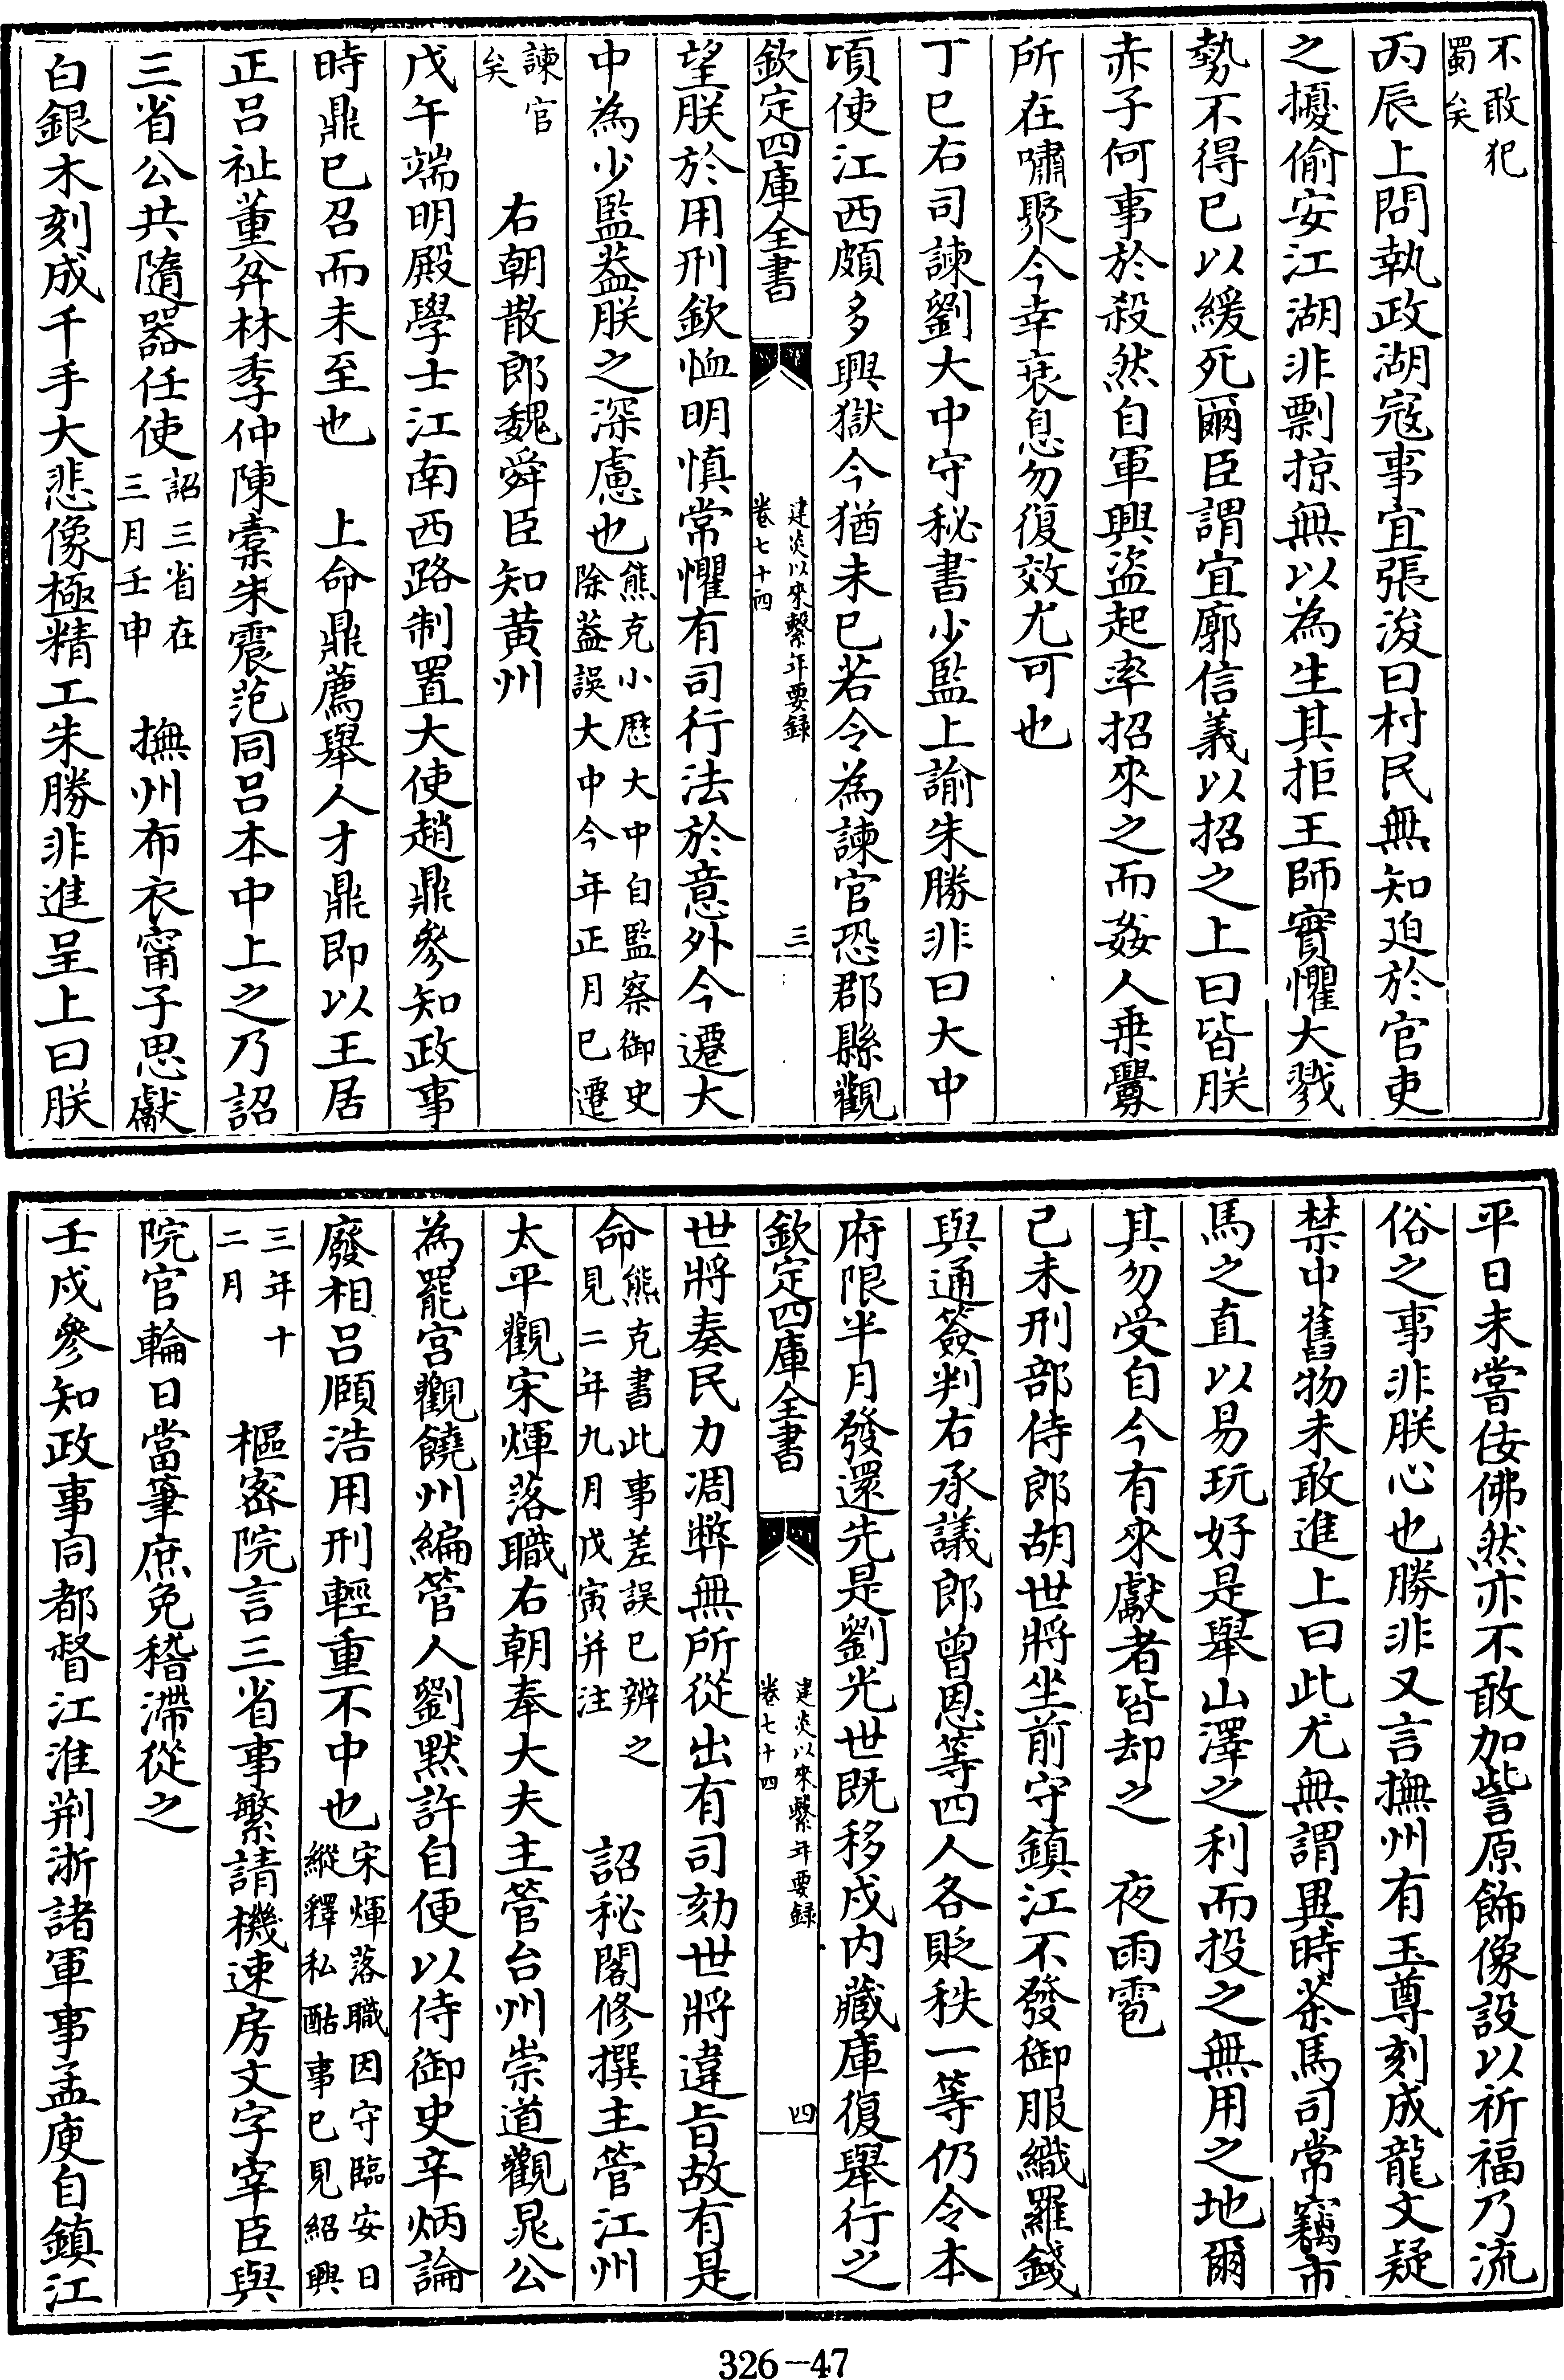 不敢犯
蜀矣
丙辰上問執政湖寇事宜張浚曰村民無知迫於官吏
之擾偷安江湖非剽掠無以為生其拒王師實懼大戮
勢不得已以緩死爾臣謂宜廓信義以招之上曰皆朕
赤子何事於殺然自軍興盜起率招來之而姦人乗釁
所在嘯聚今幸衰息勿復效尤可也
丁巳右司諫劉大中守秘書少監上諭朱勝非曰大中
頃使江西頗多興獄今猶未已若令為諫官恐郡縣觀
欽定四庫全書
建炎以來繫年要録
卷七十四
三
望朕於用刑欽恤明慎常懼有司行法於意外今遷大
中為少監葢朕之深慮也熊克小厯大中自監察御史
除葢誤大中今年正月已遷
諫官
矣
右朝散郎魏舜臣知黄州
戊午端明殿學士江南西路制置大使趙鼎參知政事
時鼎已召而未至也 上命鼎薦舉人才鼎即以王居
正呂祉董弅林季仲陳槖朱震范同呂本中上之乃詔
三省公共隨器任使詔三省在
三月壬申
撫州布衣甯子思獻
白銀木刻成千手大悲像極精工朱勝非進呈上曰朕
平日未嘗佞佛然亦不敢加訾原飾像設以祈福乃流
俗之事非朕心也勝非又言撫州有玉尊刻成龍文疑
禁中舊物未敢進上曰此尤無謂異時茶馬司常竊市
馬之直以易玩好是舉山澤之利而投之無用之地爾
其勿受自今有來獻者皆却之 夜雨雹
己未刑部侍郎胡世將坐前守鎮江不發御服織羅錢
與通簽判右承議郎曾恩等四人各貶秩一等仍令本
府限半月發還先是劉光世既移戍内藏庫復舉行之
欽定四庫全書
建炎以來繫年要録
卷七十四
四
世將奏民力凋弊無所從出有司劾世將違旨故有是
命熊克書此事差誤已辨之
見二年九月戊寅并注
詔秘閣修撰主管江州
太平觀宋煇落職右朝奉大夫主管台州崇道觀晁公
為罷宫觀饒州編管人劉默許自便以侍御史辛炳論
廢相呂頤浩用刑輕重不中也宋煇落職因守臨安日
縱釋私酤事已見紹興
三年十
二月
樞密院言三省事繁請機速房文字宰臣與
院官輪日當筆庶免稽滯從之
壬戍參知政事同都督江淮荆浙諸軍事孟庾自鎮江
326-47